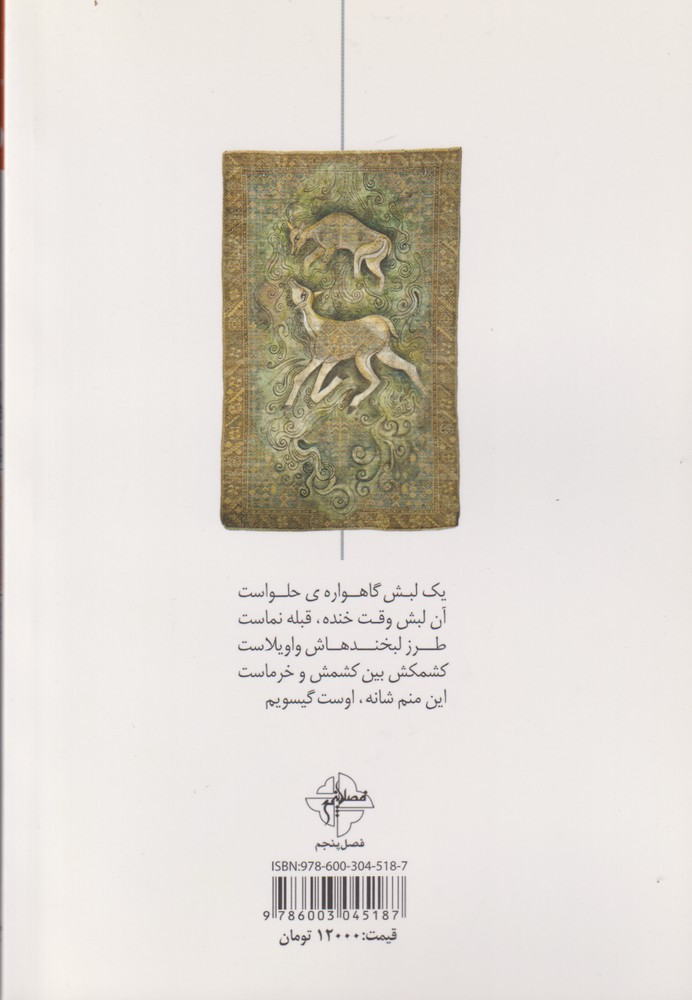 یک لبش گاهواره ی حلواست
آن لبش وقت خنده، قبله نماست
طرز لبخندهاش واویلاست
کشمکش بین کشمش و خرماست
این منم شانه، اوست گیسویم
فصل پنجم
فصل پنجم
ISBN:978-600-304-518-7
9 786003 045187
قیمت:۱۲۰۰۰ تومان